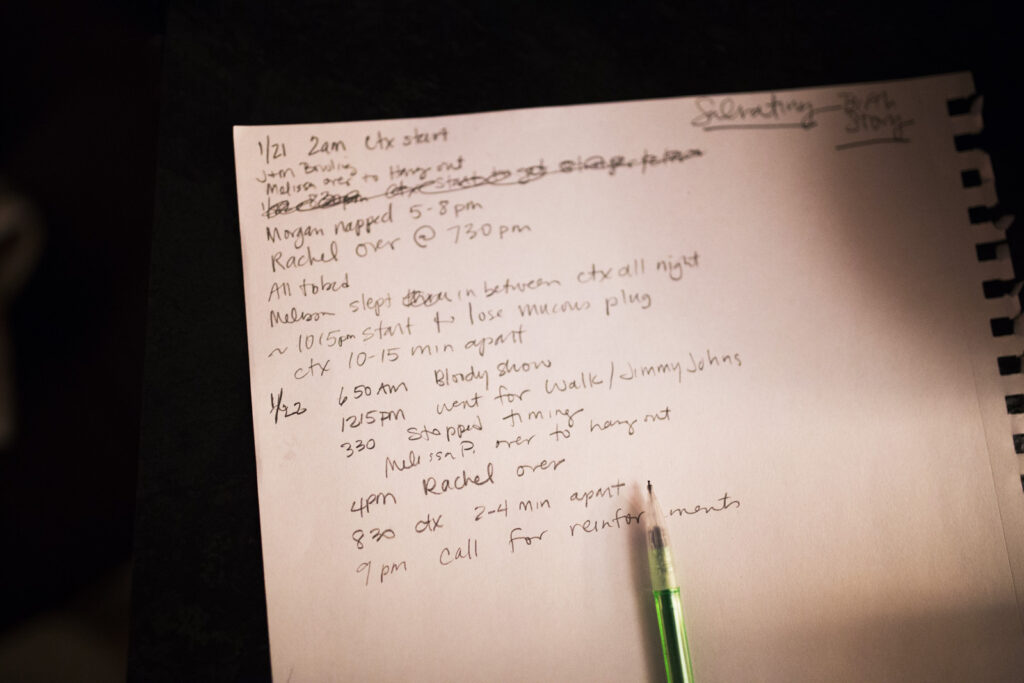 Birth
Story
1/21 2am Ctx start
J+M Bowling
Melissa over to Hang out
Morgan napped 5-8pm
Rachel over @ 730pm
All to bed
Melissa slept in between ctx all night
~ 1015pm start to lose mucous plug
ctx 10-15 min apart
1/22 650 AM Bloody show
1215pm went for walk/Jimmy Johns
330 Stopped timing
Melissa P. over to hang out
4pm Rachel over
830 ctx 2-4 min apart
9pm call for reinforcements